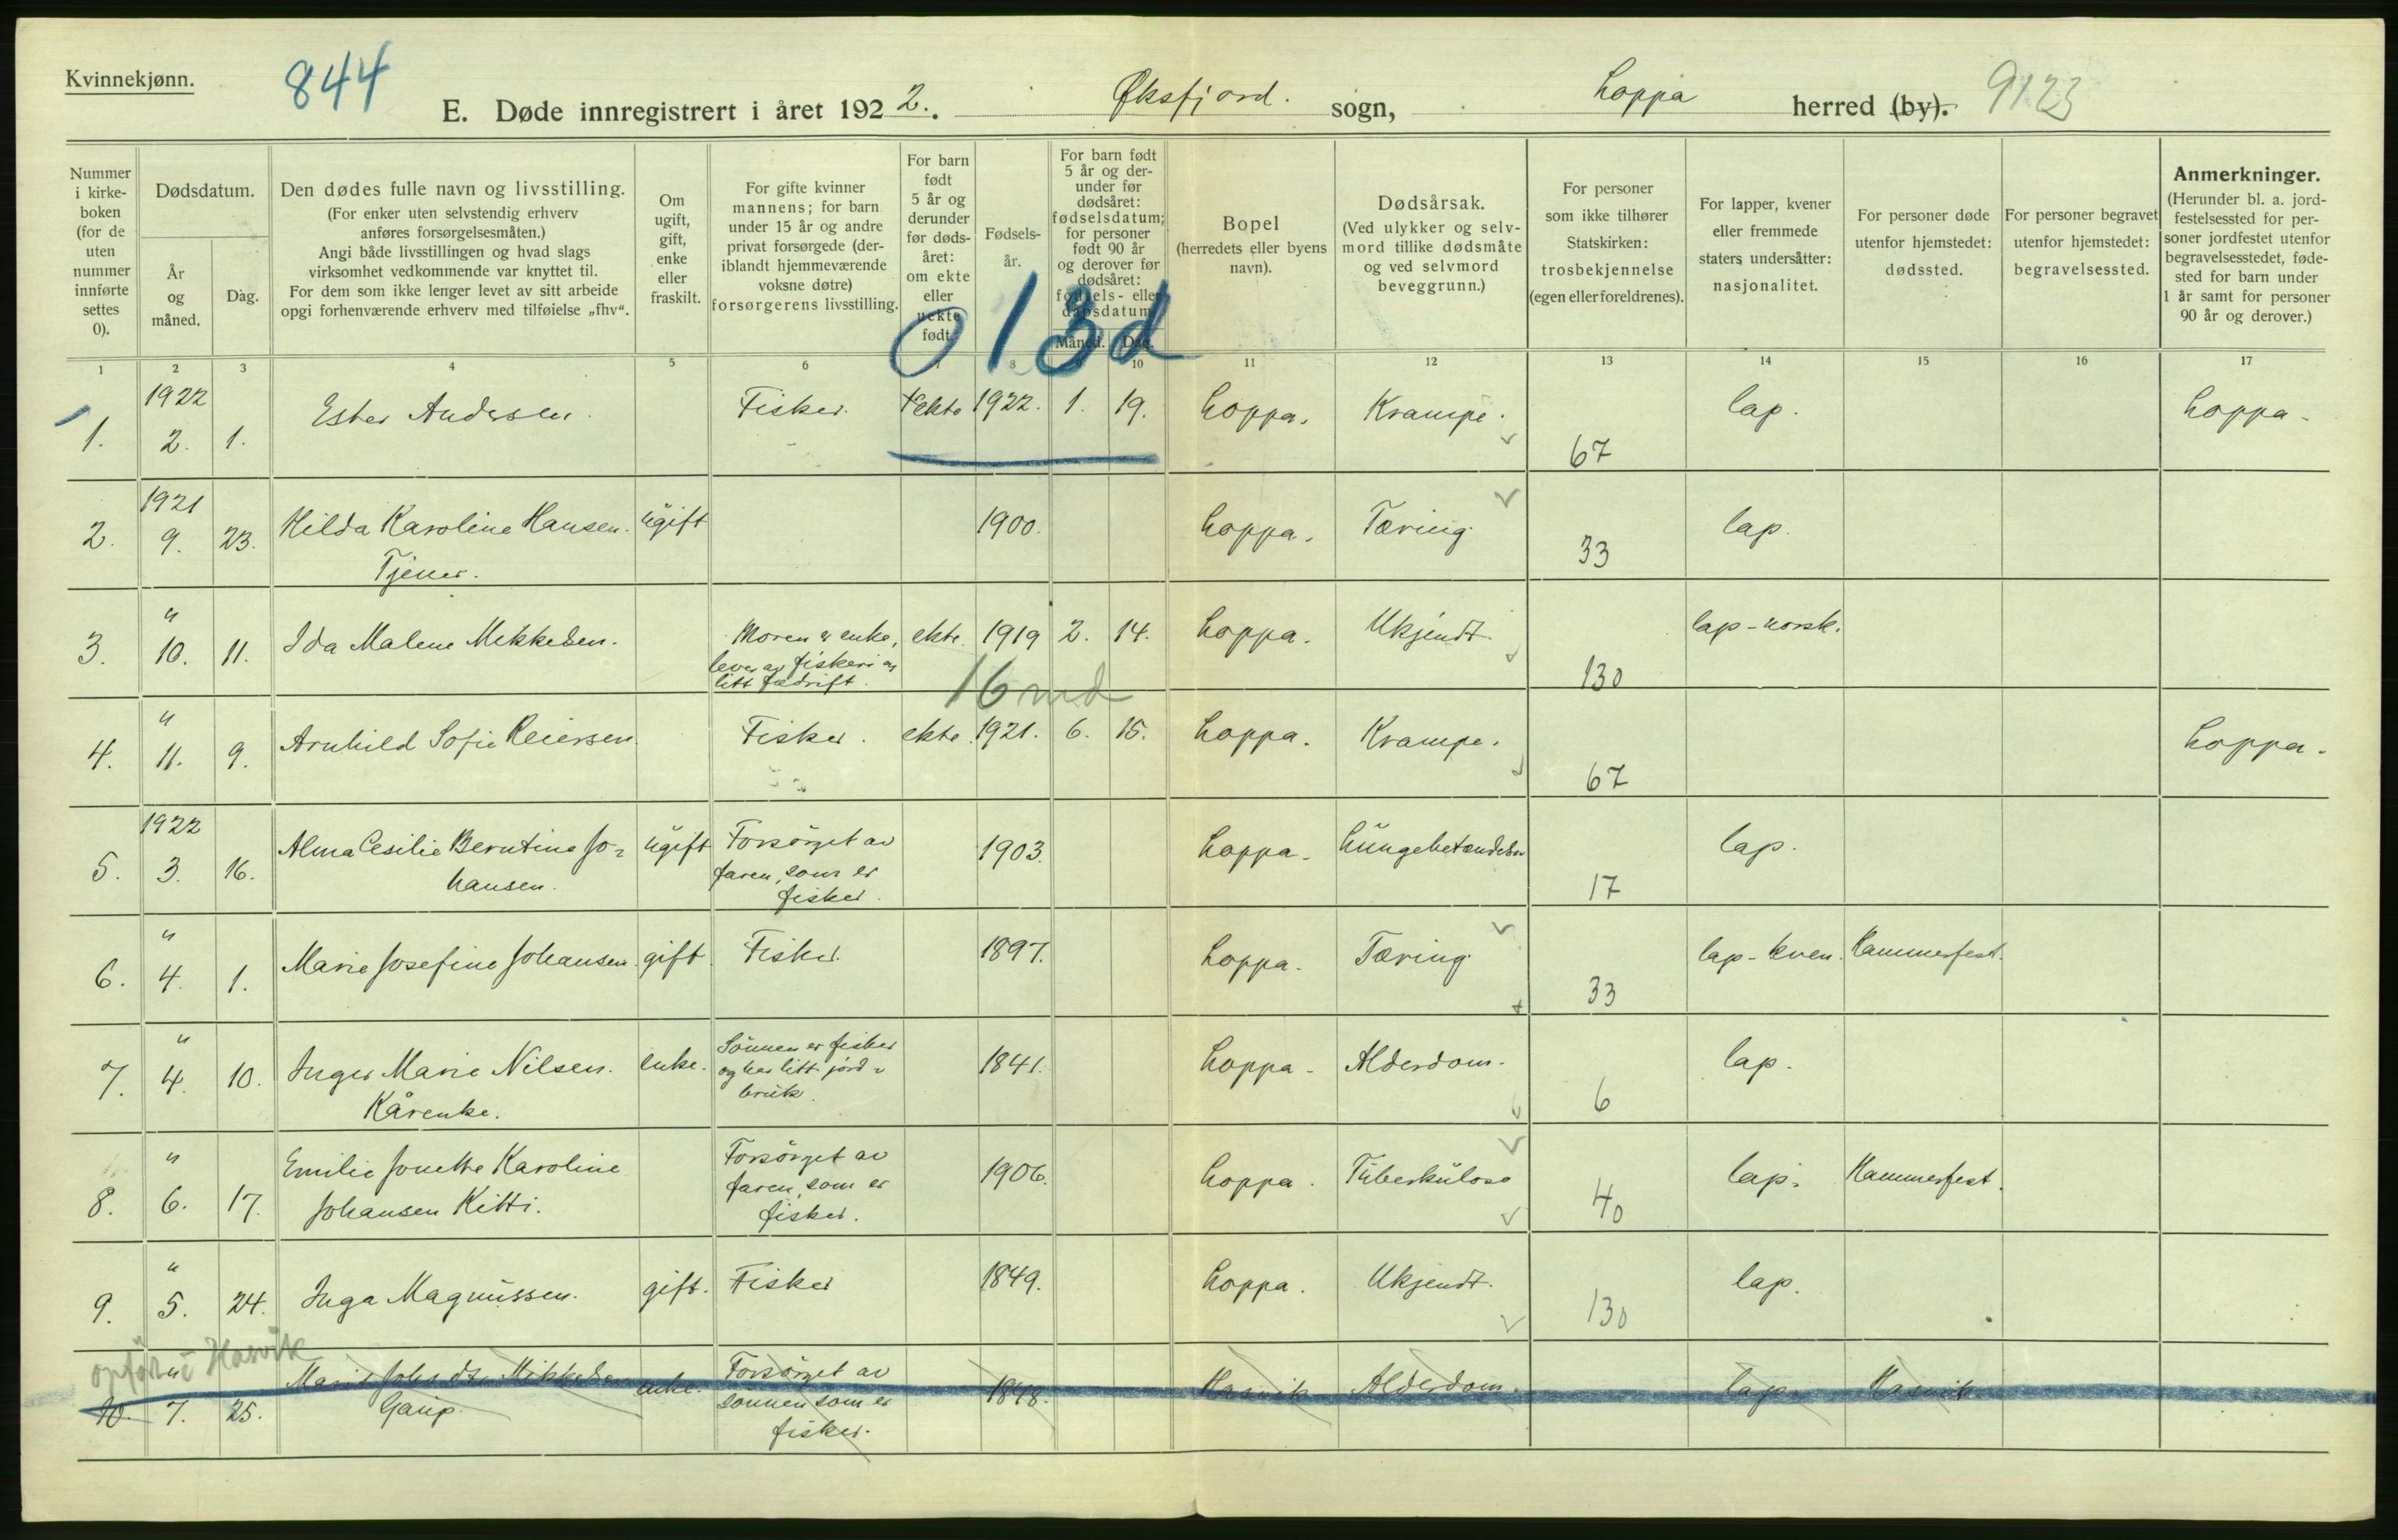 Kvinnekjønn.
844
E. Døde innregistrert i året 1922. Øksfjord. sogn, Loppa herred (by). 9123
Nummer i kirke-boken (for de uten nummer innførte settes 0).
Dødsdatum.
År og måned.
Dag.
Den dødes fulle navn og livsstilling.
(For enker uten selvstendig erhverv anføres forsørgelsesmåten.)
Angi både livsstillingen og hvad slags virksomhet vedkommende var knyttet til.
For dem som ikke lenger levet av sitt arbeide opgi forhenværende erhverv med tilføielse „fhv“.
Om ugift, gift, enke eller fraskilt.
For gifte kvinner mannens; for barn under 15 år og andre privat forsørgede (der-iblandt hjemmeværende voksne døtre) forsørgerens livsstilling.
For barn født 5 år og derunder før døds-året: om ekte eller uekte født.
Fødsels-år.
For barn født 5 år og der-under før dødsåret: fødselsdatum; for personer født 90 år og derover før dødsåret: fødsels- eller dåpsdatum.
Måned. Dag.
Bopel (herredets eller byens navn).
Dødsårsak.
(Ved ulykker og selv-mord tillike dødsmåte og ved selvmord beveggrunn.)
For personer som ikke tilhører Statskirken: trosbekjennelse (egen eller foreldrenes).
For lapper, kvener eller fremmede staters undersåtter: nasjonalitet.
For personer døde utenfor hjemstedet: dødssted.
For personer begravet utenfor hjemstedet: begravelsessted.
Anmerkninger.
(Herunder bl. a. jord-festelsessted for per-soner jordfestet utenfor begravelsesstedet, føde-sted for barn under 1 år samt for personer 90 år og derover.)
013d
1 2 3 4 5 6 7 8 9 10 11 12 13 14 15 16 17
1. 1922 2. 1. Ester Andersen. Fisker. ekte 1922. 1. 19. Loppa. Krampe. 67 lap. Loppa.
2. 1921 9. 23. Hilda Karoline Hansen. ugift 1900. Loppa. Tæring. 33 lap.
Tjener.
3. " 10. 11. Ida Malene Mikkelsen. Moren er enke, ekte. 1919 2. 14. Loppa. Ukjendt. 130 lap-norsk.
lever av fiskeri og
litt fædrift.
16 md
4. " 11. 9. Arnhild Sofie Reiersen. Fisker. ekte. 1921. 6. 15. Loppa. Krampe. 67 Loppa.
5. 1922 3. 16. Alma Cesilie Berntine Jo- ugift Forsørget av 1903. Loppa. Lungebetændelse 17 lap.
hansen. faren, som er
fisker.
6. " 4. 1. Marie Josefine Johansen. gift Fisker. 1897. Loppa. Tæring. 33 lap-kven. Hammerfest.
7. " 4. 10. Inger Marie Nilsen. enke. Sønnen er fisker 1841. Loppa. Alderdom. 6 lap.
Kårenke. og har litt jord-
bruk.
8. " 6. 17. Emilie Jonette Karoline Forsørget av 1906. Loppa. Tuberkulose 40 lap. Hammerfest.
Johansen Kitti. faren, som er
fisker.
9. " 5. 24. Inga Magnussen. gift. Fisker 1849. Loppa. Ukjendt. 130 lap.
opført i Hasvik
10. " 7. 25. Marit Mikkelsen enke. Forsørget av 1848. Hasvik Alderdom. lap. Hasvik
Gaup. sønnen som er
fisker.